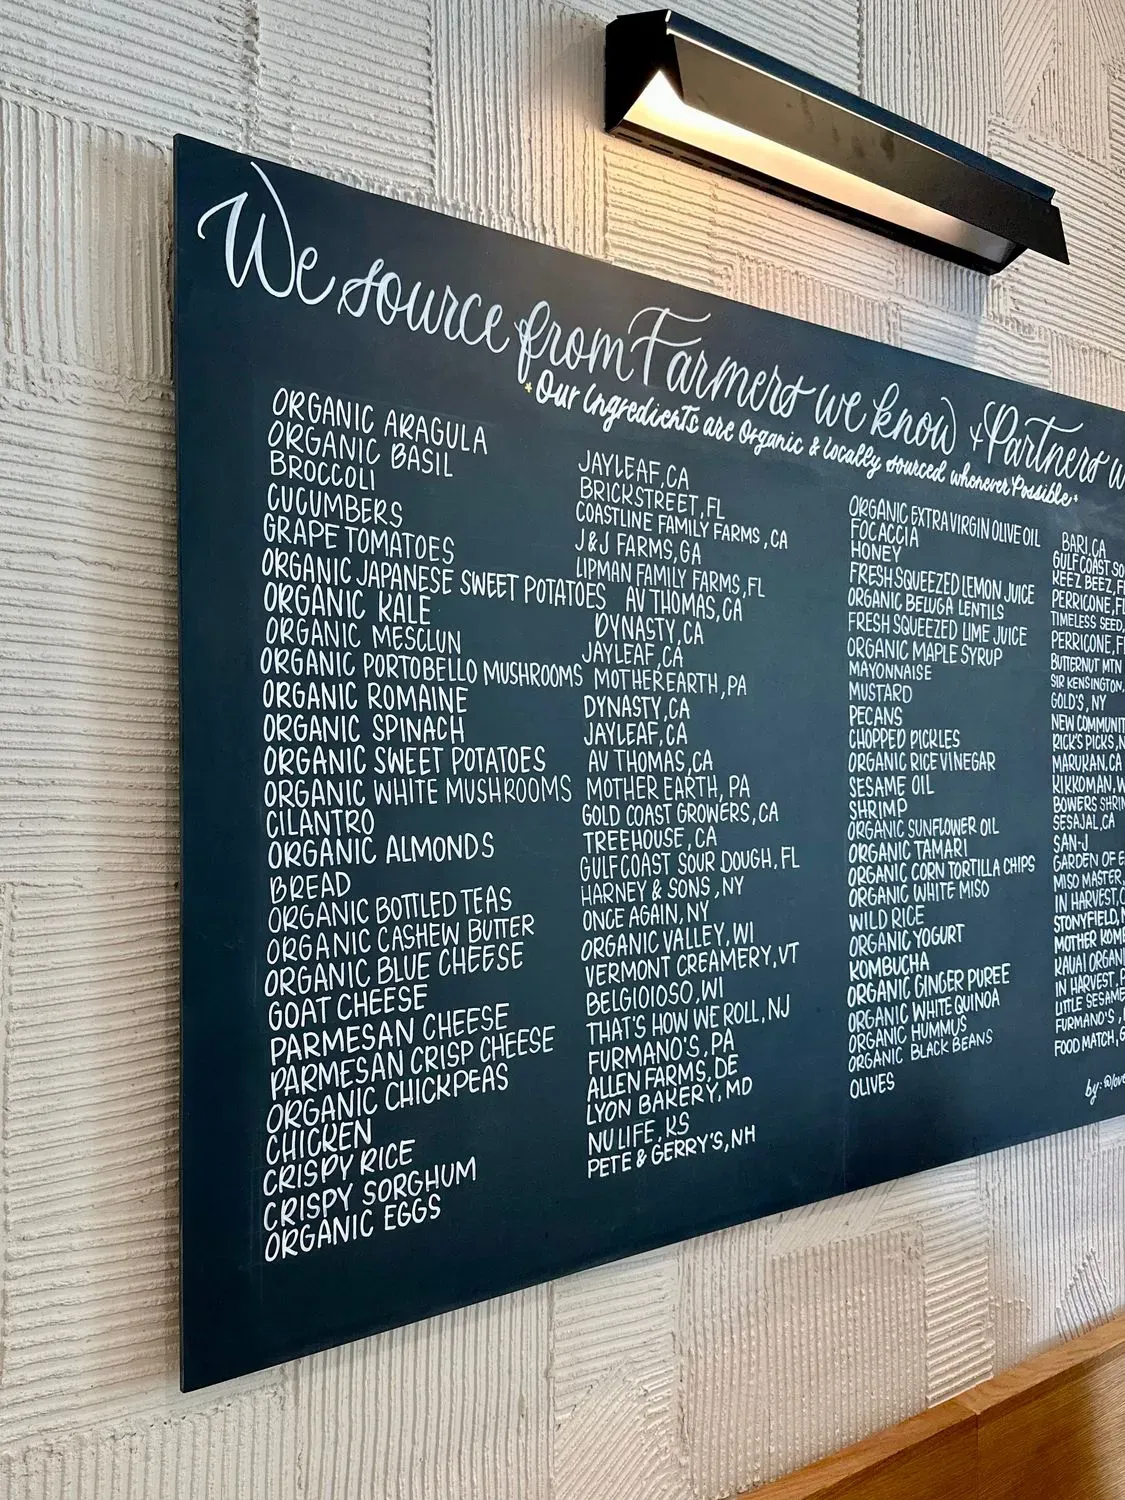 We source from Farmers we know & Partners w
*Our Ingredients are Organic & Locally sourced whenever Possible*
ORGANIC ARAGULA
ORGANIC BASIL
BROCCOLI
CUCUMBERS
GRAPE TOMATOES
ORGANIC JAPANESE SWEET POTATOES
ORGANIC KALE
ORGANIC MESCLUN
ORGANIC PORTOBELLO MUSHROOMS
ORGANIC ROMAINE
ORGANIC SPINACH
ORGANIC SWEET POTATOES
ORGANIC WHITE MUSHROOMS
CILANTRO
ORGANIC ALMONDS
BREAD
ORGANIC BOTTLED TEAS
ORGANIC CASHEW BUTTER
ORGANIC BLUE CHEESE
GOAT CHEESE
PARMESAN CHEESE
PARMESAN CRISP CHEESE
ORGANIC CHICKPEAS
CHICKEN
CRISPY RICE
CRISPY SORGHUM
ORGANIC EGGS
JAYLEAF, CA
BRICKSTREET, FL
COASTLINE FAMILY FARMS, CA
J&J FARMS, GA
LIPMAN FAMILY FARMS, FL
AV THOMAS, CA
DYNASTY, CA
JAYLEAF, CA
MOTHER EARTH, PA
DYNASTY, CA
JAYLEAF, CA
AV THOMAS, CA
MOTHER EARTH, PA
GOLD COAST GROWERS, CA
TREEHOUSE, CA
GULF COAST SOUR DOUGH, FL
HARNEY & SONS, NY
ONCE AGAIN, NY
ORGANIC VALLEY, WI
VERMONT CREAMERY, VT
BELGIOIOSO, WI
THAT'S HOW WE ROLL, NJ
FURMANO'S, PA
ALLEN FARMS, DE
LYON BAKERY, MD
NU LIFE, KS
PETE & GERRY'S, NH
ORGANIC EXTRA VIRGIN OLIVE OIL
FOCACCIA
HONEY
FRESH SQUEEZED LEMON JUICE
ORGANIC BELUGA LENTILS
FRESH SQUEEZED LIME JUICE
ORGANIC MAPLE SYRUP
MAYONNAISE
MUSTARD
PECANS
CHOPPED PICKLES
ORGANIC RICE VINEGAR
SESAME OIL
SHRIMP
ORGANIC SUNFLOWER OIL
ORGANIC TAMARI
ORGANIC CORN TORTILLA CHIPS
ORGANIC WHITE MISO
WILD RICE
ORGANIC YOGURT
KOMBUCHA
ORGANIC GINGER PUREE
ORGANIC WHITE QUINOA
ORGANIC HUMMUS
ORGANIC BLACK BEANS
OLIVES
BARI, CA
GULF COAST SO
KEEZ BEEZ, F
PERRICONE, FL
TIMELESS SEED,
PERRICONE, F
BUTTERNUT MTN
SIR KENSINGTON,
GOLD'S, NY
NEW COMMUNIT
RICK'S PICKS, N
MARUKAN, CA
KIKKOMAN, W
BOWERS SHRIM
SESAJAL, CA
SAN-J
GARDEN OF E
MISO MASTER,
IN HARVEST, C
STONYFIELD, N
MOTHER KOMB
KAUAI ORGANI
IN HARVEST, P
LITTLE SESAME
FURMANO'S,
FOOD MATCH, G
by: @love